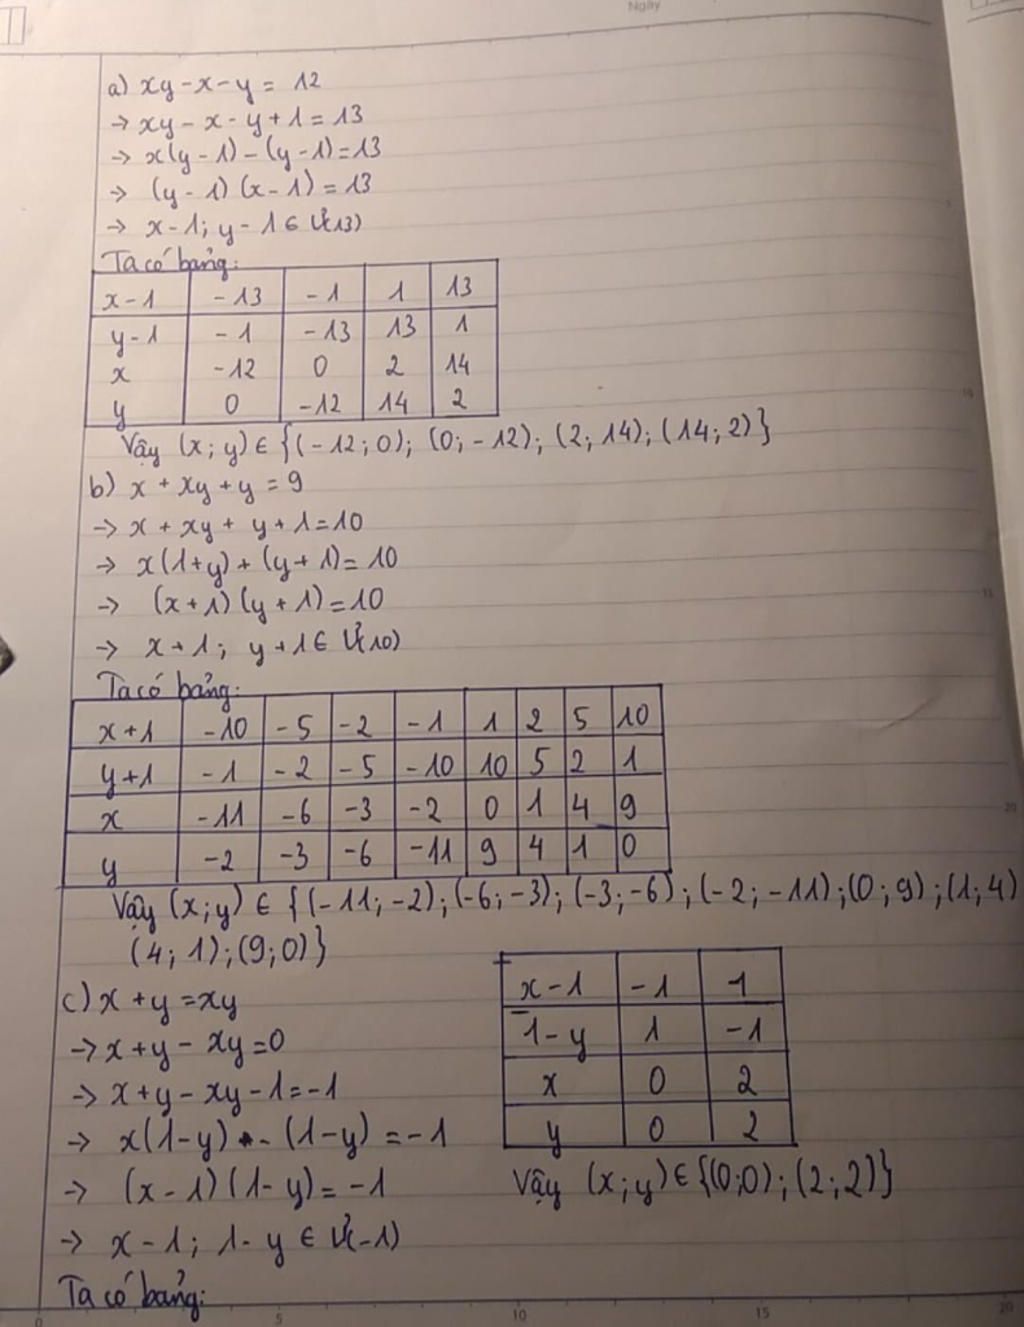 Ngày
a) xy - x - y = 12
→ xy - x - y + 1 = 13
→ x(y - 1) - (y - 1) = 13
→ (y - 1) (x - 1) = 13
→ x - 1; y - 1 ∈ Ư(13)
Ta có bảng:
x - 1 -13 -1 1 13
y - 1 -1 -13 13 1
x -12 0 2 14
y 0 -12 14 2
Vậy (x; y) ∈ {(-12; 0); (0; -12); (2; 14); (14; 2)}
b) x + xy + y = 9
→ x + xy + y + 1 = 10
→ x(1+y) + (y + 1) = 10
→ (x + 1) (y + 1) = 10
→ x + 1; y + 1 ∈ Ư(10)
Ta có bảng:
x+1 -10 -5 -2 -1 1 2 5 10
y+1 -1 -2 -5 -10 10 5 2 1
x -11 -6 -3 -2 0 1 4 9
y -2 -3 -6 -11 9 4 1 0
Vậy (x; y) ∈ {(-11; -2); (-6; -3); (-3; -6); (-2; -11); (0; 9); (1; 4)
(4; 1); (9; 0)}
c) x + y = xy
→ x + y - xy = 0
→ x + y - xy - 1 = -1
→ x(1-y) - (1-y) = -1
→ (x - 1) (1 - y) = -1
→ x - 1; 1 - y ∈ Ư(-1)
Ta có bảng:
x-1 -1 1
1-y 1 -1
x 0 2
y 0 2
Vậy (x; y) ∈ {(0; 0); (2; 2)}
0 5 10 15 20